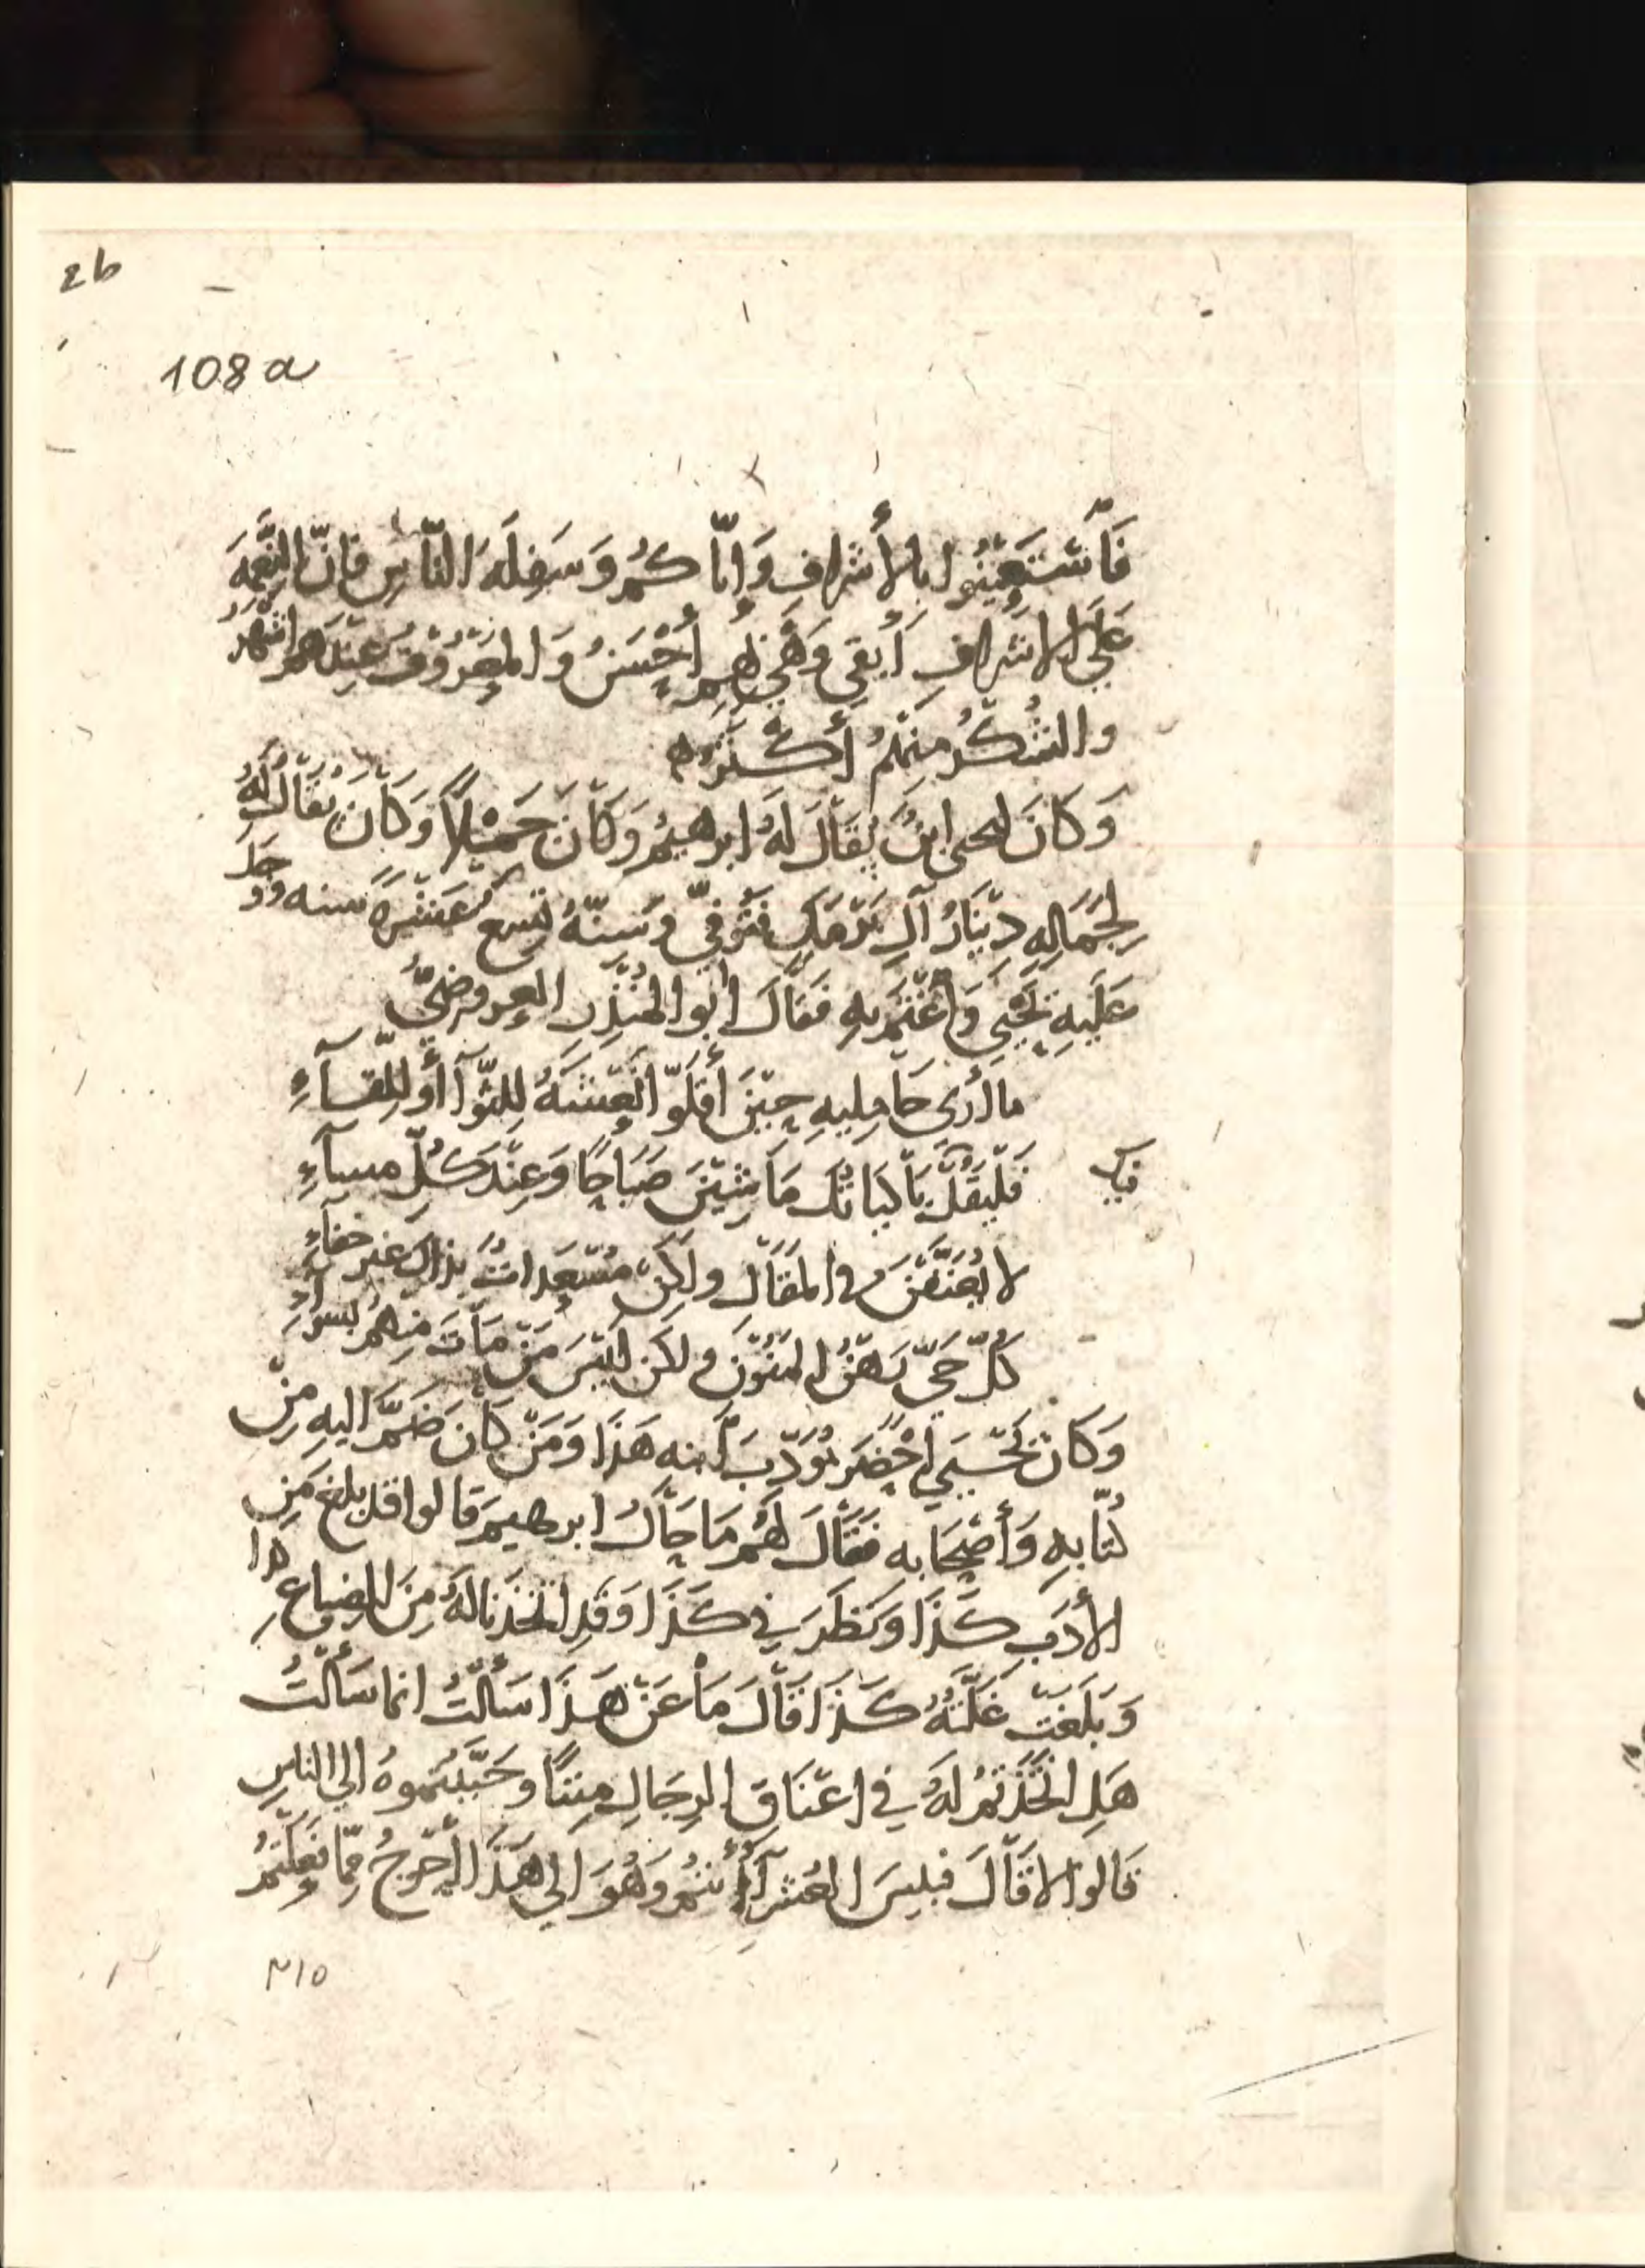 2b
108a
فَاسْتَعِينُوا بالأَشرافِ وَاِيّاكُم وَسَفِلَةَ النّاسِ فَاِنّ النِّعْمَةَ
عَلَى الاشرافِ أَبقى وَهْيَ بهم أَحْسَنُ وَالمعْرُوفُ عِنْدَهم اشْهَرُ
والشُكْرُ مِنهُمْ أَكْثَرُ
وَكَانَ ليحيى ابنٌ يُقَالُ لَهُ ابرهيمُ وَكَانَ جَمِيلاً وَكَانَ يُقَالُ لَهُ
لِجَمَالِهِ دِينَارُ آلِ بَرْمَكٍ فَتُوفِّيَ وَسِنّهُ تِسع عَشْرَةَ سنه وَوَجَدَ
عَلَيهِ يَحْيى وَاغْتَمَّ بهِ فَقَالَ ابُو المُنْذِرِ العروضِيُّ
ما أرى حَامِليهِ حِيْنَ أَقَلّوا نَعْشَهُ لِلثَّوَآ أَو لِلِّقآءِ
فَلْيَقُلْ بَاكِيَاتُكَ مَا شِيْنَ صَبَاحًا وَعِنْدَ كُلِّ مسآءِ
لا يُعَنَّفْنَ في المقَالِ ولكِنْ مُسْعَداتٌ بذاكَ غير خفآءِ
كُلّ حَيّ رَهْنُ المَنُوْنِ ولكن لَيْسَ مَنْ مَاتَ مِنهمُ بسواءِ
وَكَانَ يَحْيى أحْضَرَ مُؤَدِّبَ ابنه هَذَا وَمَنْ كَانَ ضَمَّ اليهِ مِنْ
كُتّابِهِ وَأَصْحَابِه فَقَالَ لهُمْ مَا حَالُ ابرهيمَ قَالوا قد بلغ مِن
الأَدَبِ كَذَا وَنَظَرَ في كَذَا وَقَدِ اتّخَذنا لَهُ مِنَ الضِياعِ كذا
وَبَلَغَتْ غَلَّتُهُ كَذَا قَالَ مَا عَنْ هَذَا سَأَلْتُ انما سَأَلْتُ
هَلِ اتّخَذْتمُ لَهُ في اعْنَاقِ الرِجَالِ مِنَنًا وَحَبَّبْتموهُ الى الناسِ
قَالوا لا قَالَ فبِيسَ العُشَرَآءُ أَنتُم وَهُوَ الى هَذَا أَحْوَجُ مِمّا فَعَلْتُمْ
٣١٥